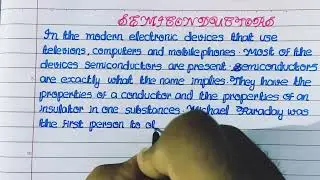 SEMICONDUCTORS
In the modern electronic devices that use
televions, computers and mobilephones. Most of the
devices semiconductors are present. Semiconductors
are exactly what the name implies. They have the
properties of a conductor and the properties of an
insulator in one substances. Michael Faraday was
the first person to ob